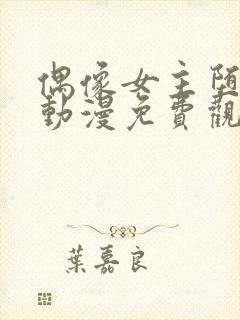 偶像女主堕
動漫免費觀
葉嘉良